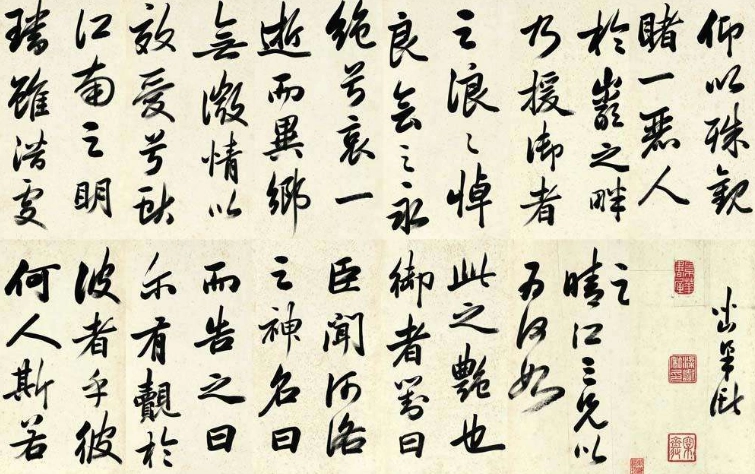 仰以殊觀
睹一麗人
於巖之畔
乃援御者
之浪〻悼
良會之永
絕兮哀一
逝而異鄉
無微情以
效愛兮獻
江南之明
璫雖潛處
之
晴江三兄以
為何如
此之艷也
御者對曰
臣聞河洛
之神名曰
而告之曰
尔有覿於
彼者乎彼
何人斯若